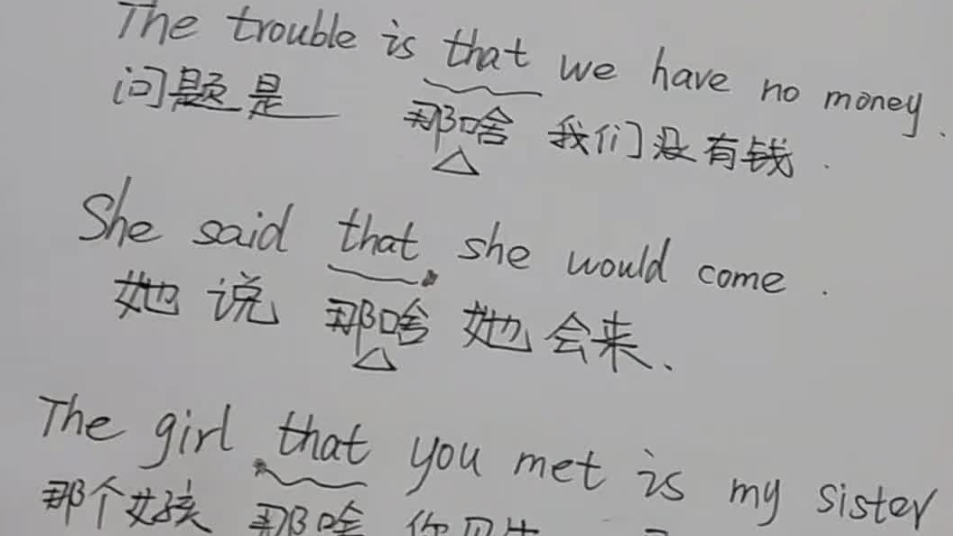 The trouble is that we have no money.
问题是 那啥 我们没有钱.
She said that she would come.
她说 那啥 她会来、
The girl that you met is my sister
那个女孩 那啥 你